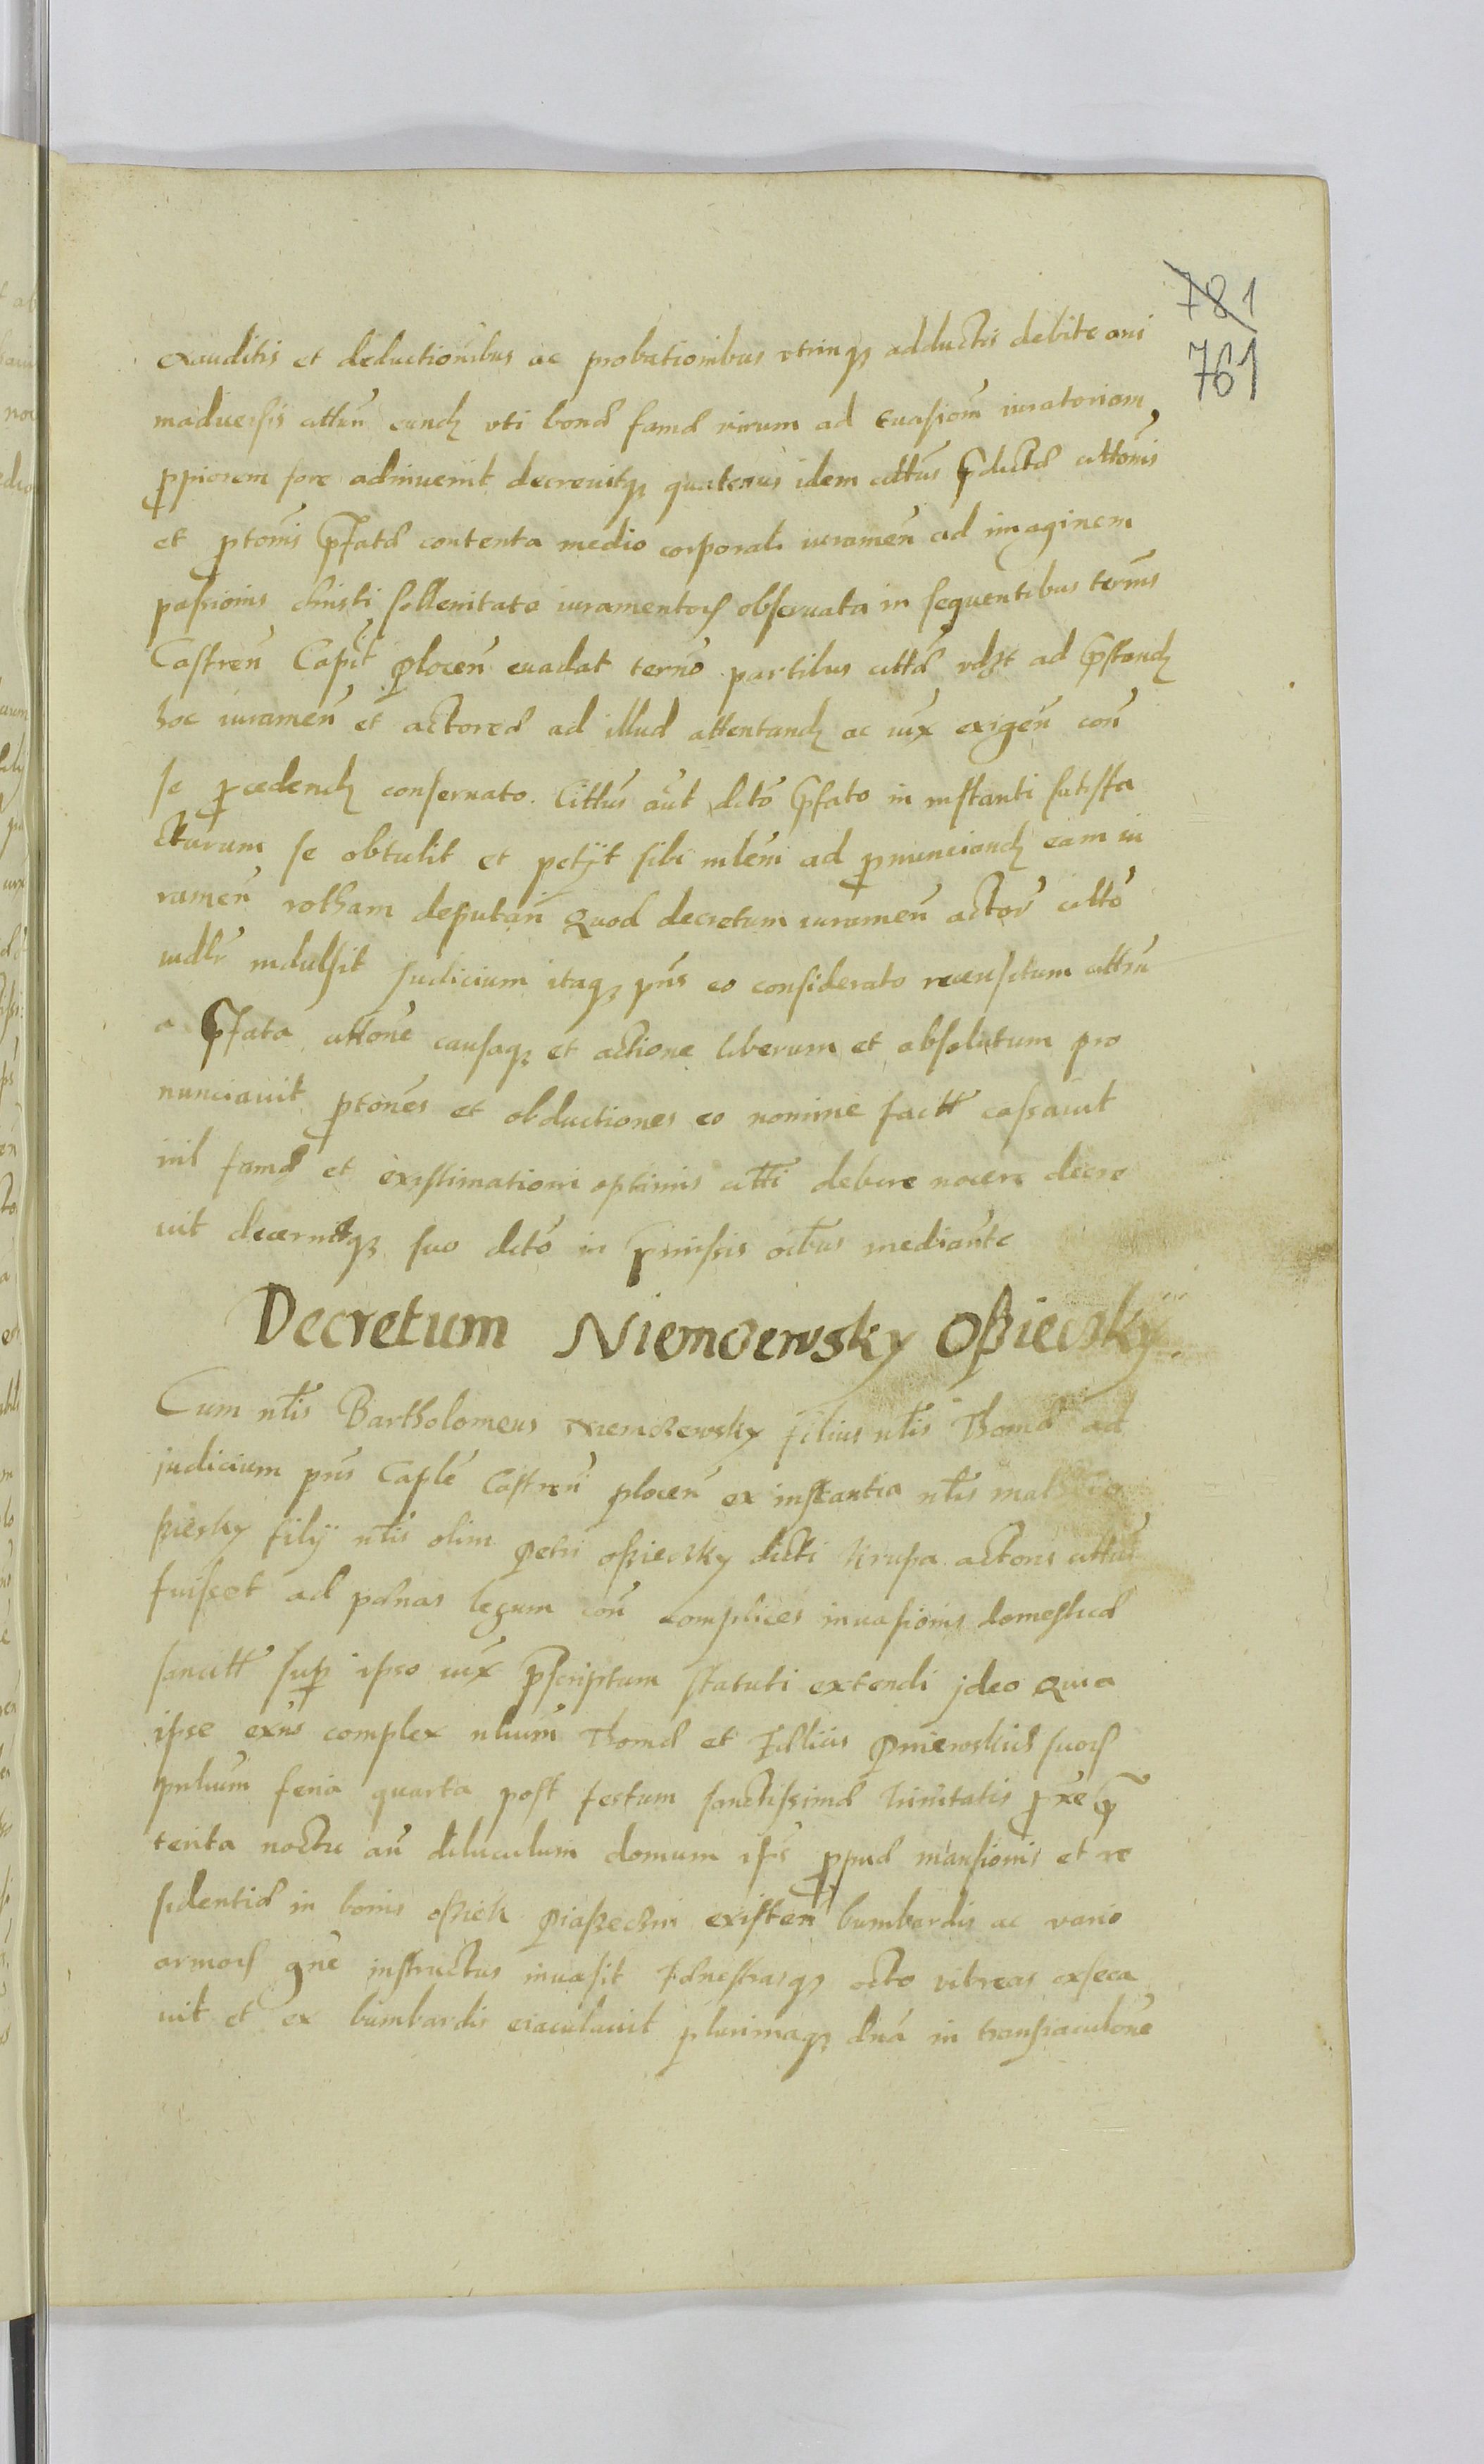 781
761
exauditis et deductionibus ac probationibus utrinqȝ adductis debite ani
maduersis cittum eundȝ uti bonæ famæ virum ad Euasiom̄ iuratoriam
ꝓpiorem fore adinuenit decreuitqȝ quatenus idem cittus p̄dictæ cittonis
et ꝓtonis p̄fatæ contenta medio corporali iuramen̄ ad imaginem
passionis christi sollenitate iuramentoꝝ obseruata in sequentibus termis
Castren̄ Capit̄ Plocen̄ euadat termō partibus cittæ vdzt ad p̄standȝ
hoc iuramen̄ et actoreæ ad illud attentandȝ ac iux̄ exigen̄ con̄
se ꝓcedendȝ conseruato. Cittus aūt dctō p̄fato in instanti satisfa
cturum se obtulit et petijt sibi mlēm ad ꝓnunciandȝ eam iu
ramen̄ rotham deputan̄ Quod decretum iuramen̄ actor̄ cittō
iudlr̄ indulsit Judicium itaqȝ pn̄s eo considerato recensitum cittm̄
a p̄fata cittone causaqȝ et actione liberum et absolutum pro
nunciauit ꝓtones et obductiones eo nomine factt cassauit
nil famæ et existimationi optimis citti debere nocere decre
uit decernitqȝ suo dctō in p̄missis oībus mediante
Decretum Niemczewsky Osziecsky
Cum nt̄is Bartholomeus Niemczewsky filius nt̄is Thomæ ad
judicium pn̄s Caplē Castren̄ plocen̄ ex instantia nt̄is
sziecky filij nt̄is olim Petri osziecsky dicti Krupa actoris cittus
fuisset ad pænas legum con̄ complices inuasionis domesticæ
sancitt suꝑ ipso iux̄ p̄scriptum statuti extendi jdeo Quia
ipse exn̄s complex nlium̄ Thomæ et Fælicis Pniewskich suoꝝ
pnlium̄ feria quarta post festum sanctissimæ trinitatis ꝓxe p̄
terita noctu an̄ diluculum domum ips̄ ꝓpriæ mansionis et re
sidentiæ in bonis osziek Piaszeczni existen̄ bumbardis ac vario
armoꝝ gn̄e instructus inuasit Fænestrasqȝ octo vitreas exseca
uit et ex bumbardis eiaculauit plurimaqȝ dn̄a in transiaculōne